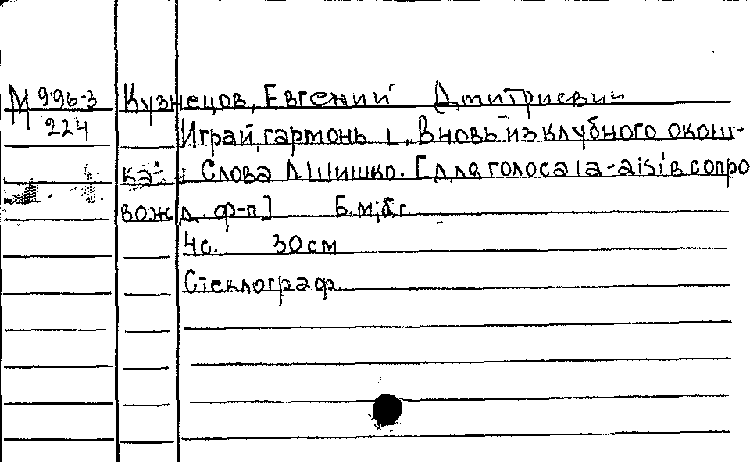 М 996-3 Кузнецов, Евгений Дмитриевич
224 Играй, гармонь! „Вновь из клубного окош-
ка" Слова Л Шишко. [Для голоса (a-ais) в сопро
вожд. ф-п] Б.м; б.г.
4с. 30 см
Стеклограф.